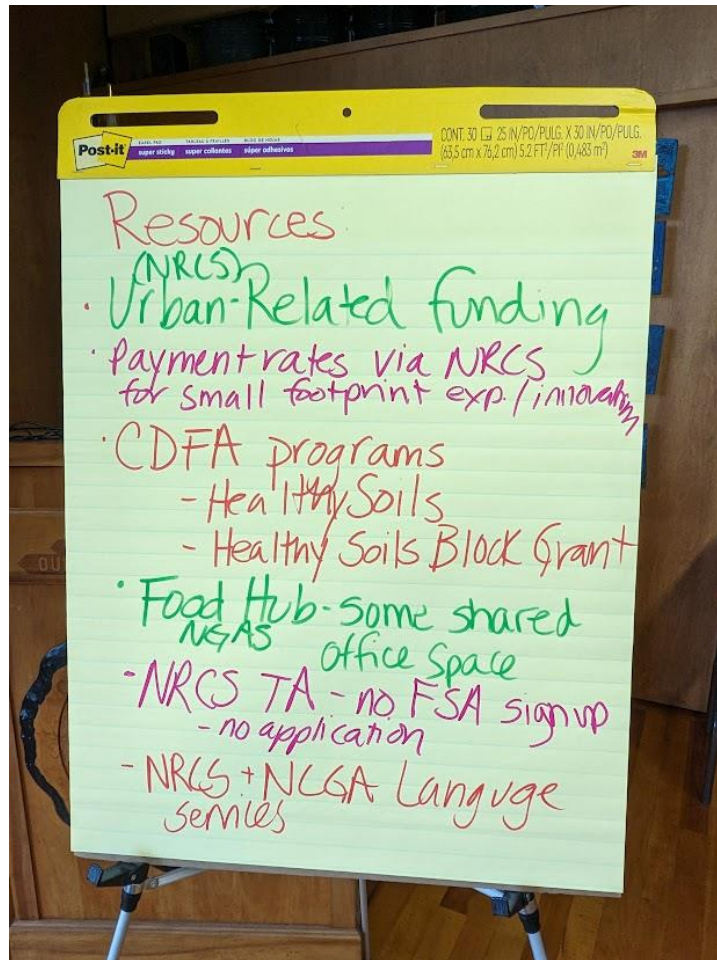 Post-it
EASEL PAD TABLEAU À FEUILLES BLOC DE HOJAS
super sticky super collantes súper adhesivas
CONT. 30 25 IN/PO/PULG. X 30 IN/PO/PULG.
(63,5 cm x 76,2 cm) 5.2 FT²/PI² (0,483 m²)
3M
Resources:
(NRCS)
· Urban-Related funding
· Payment rates via NRCS
for small footprint exp./innovation
· CDFA programs
- Healthy Soils
- Healthy Soils Block Grant
· Food Hub - Some shared
NGAS Office Space
- NRCS TA - no FSA sign up
- no application
- NRCS + NCGA Languge
services
OU